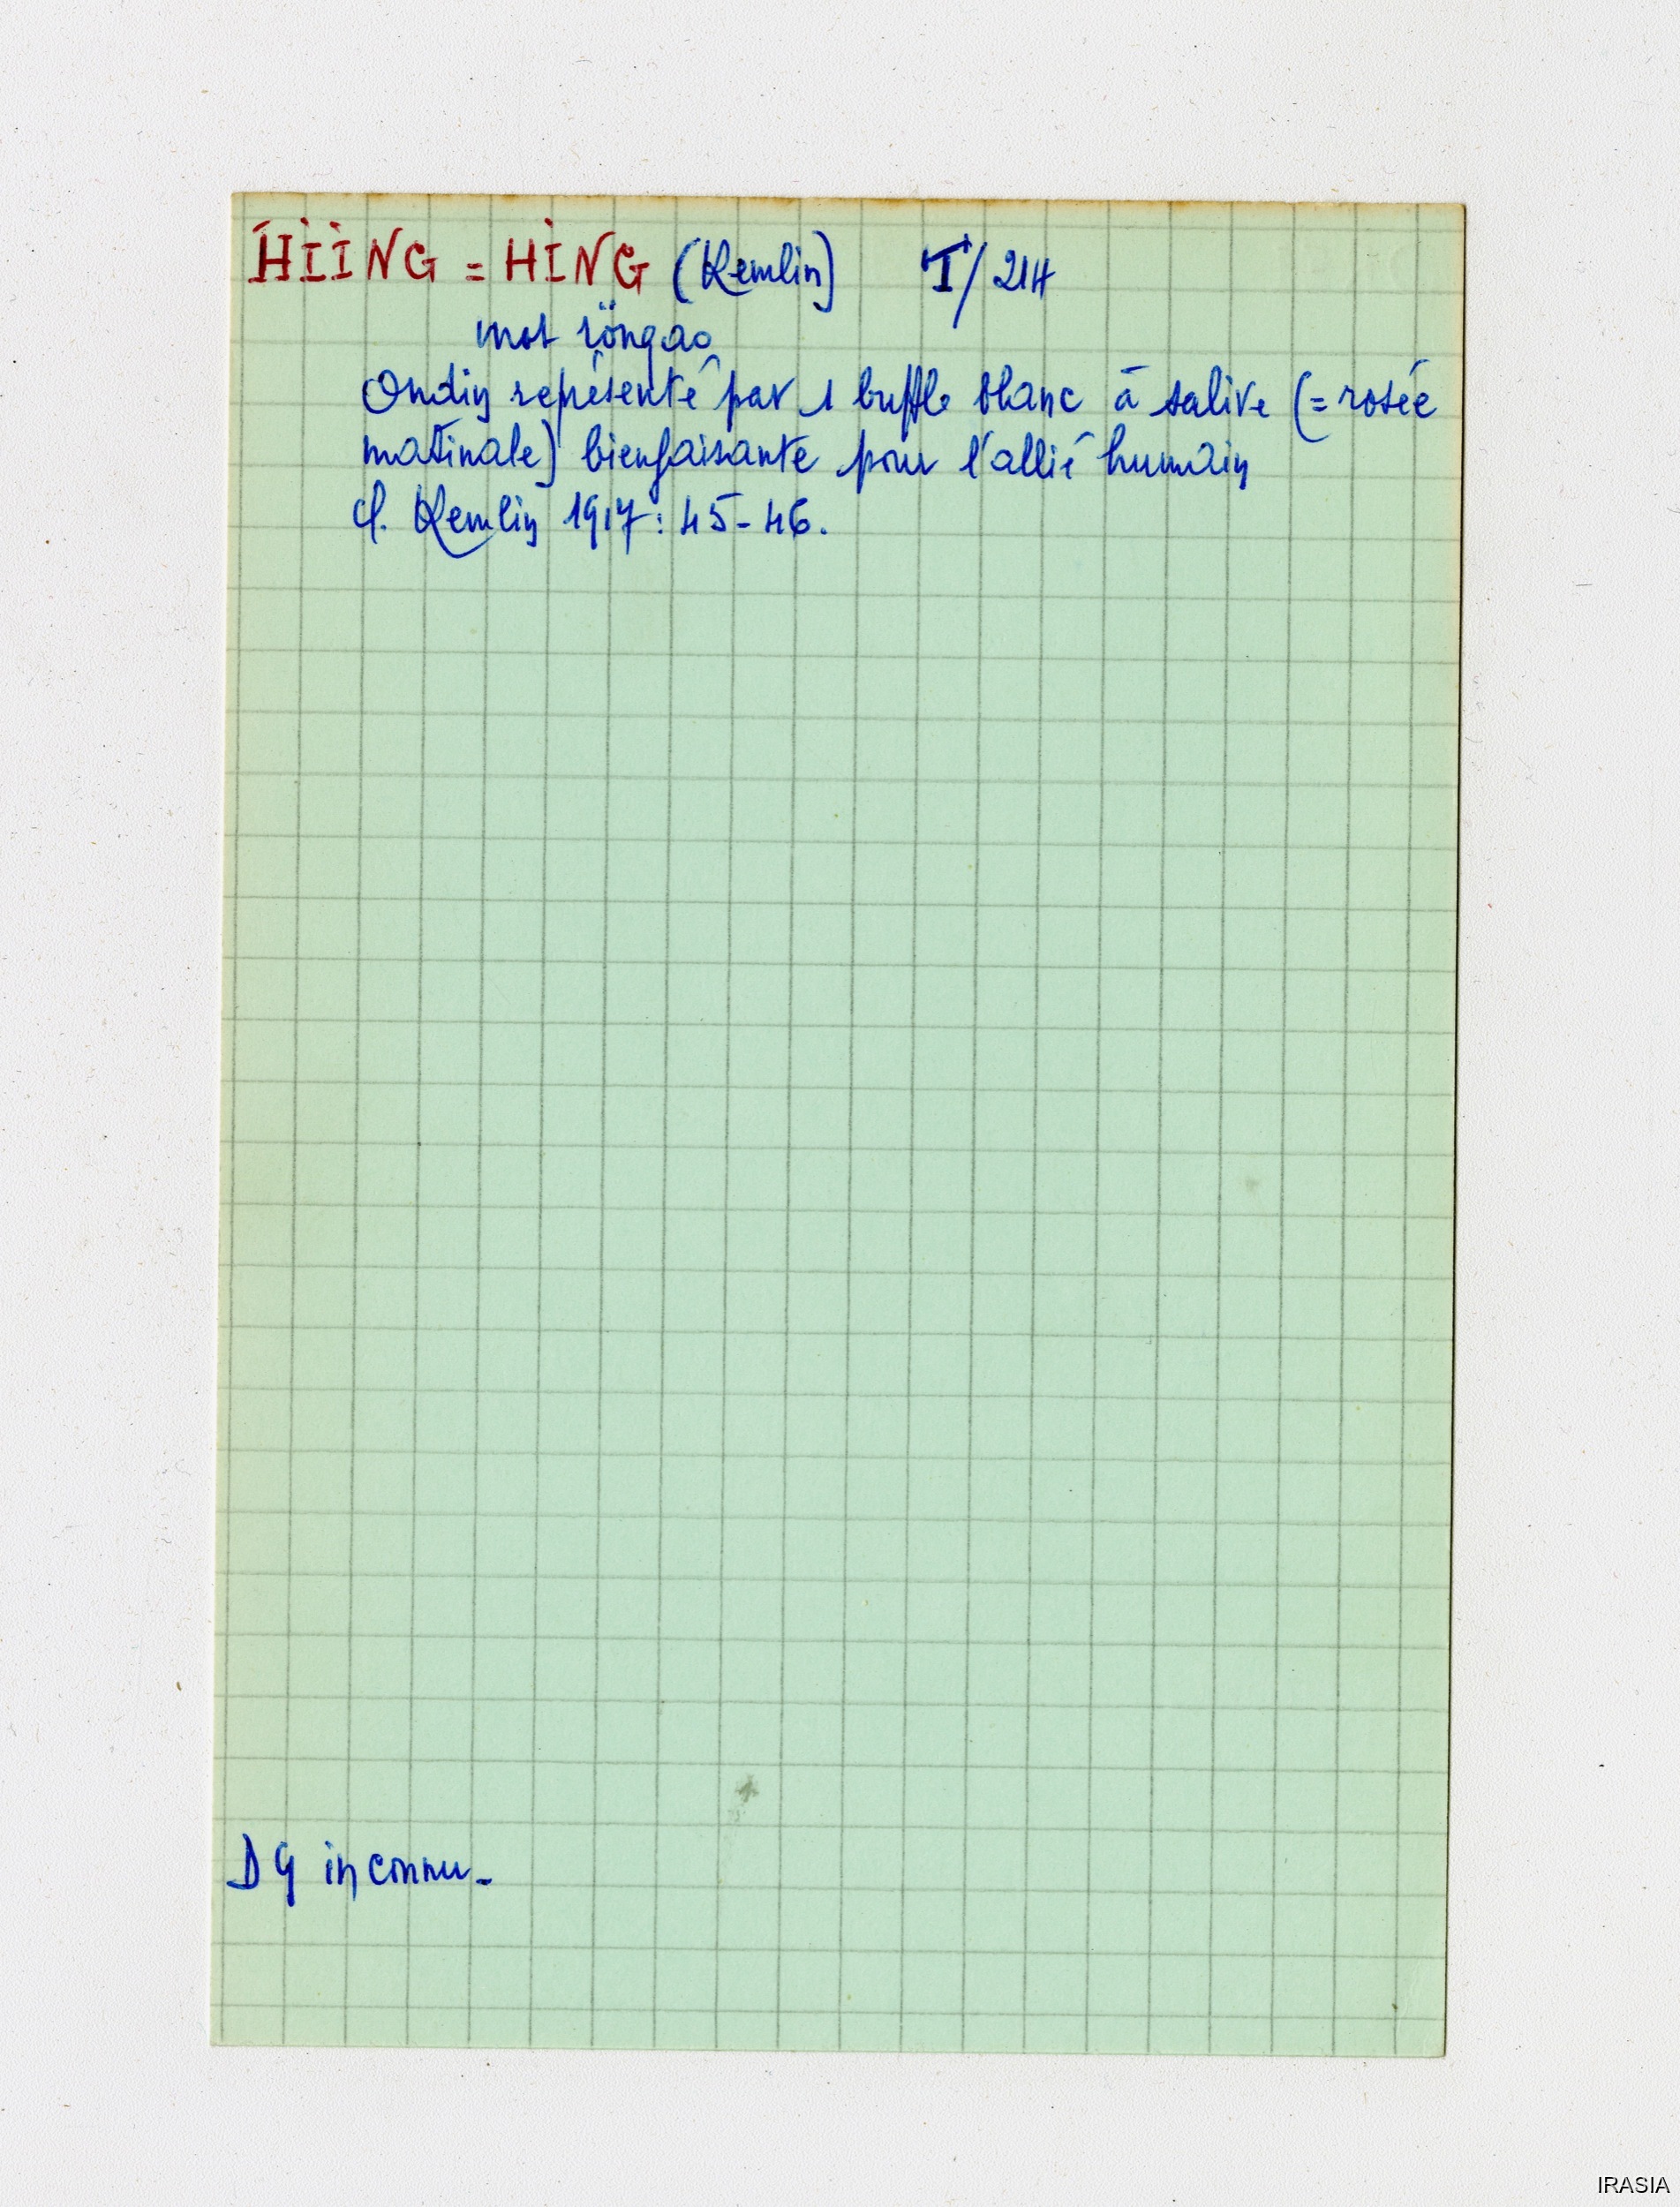 HIING = HING (Kemlin) I/214
mot röngao
Ondin représenté par 1 buffle blanc à salive (= rosée
matinale) bienfaisante pour l'allié humain
cf. Kemlin 1917: 45-46.
DG inconnu-
IRASIA